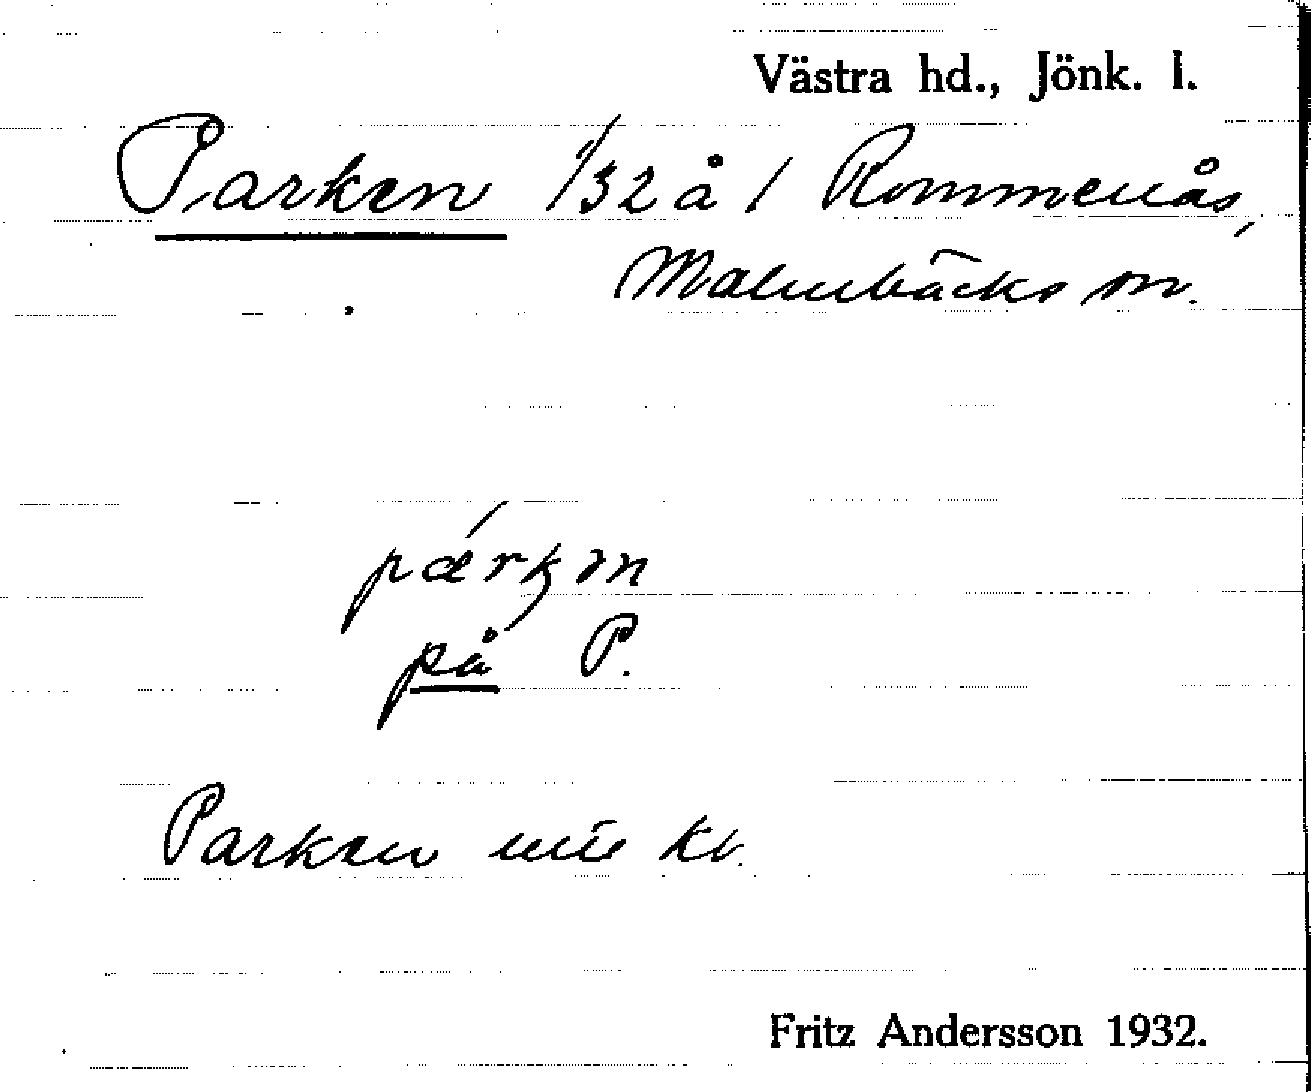 Västra hd., Jönk. l.
Parken 1/32 å 1 Rommenås,
Malmbäcks sn.
pærkən
på P.
Parken utie kb.
Fritz Andersson 1932.